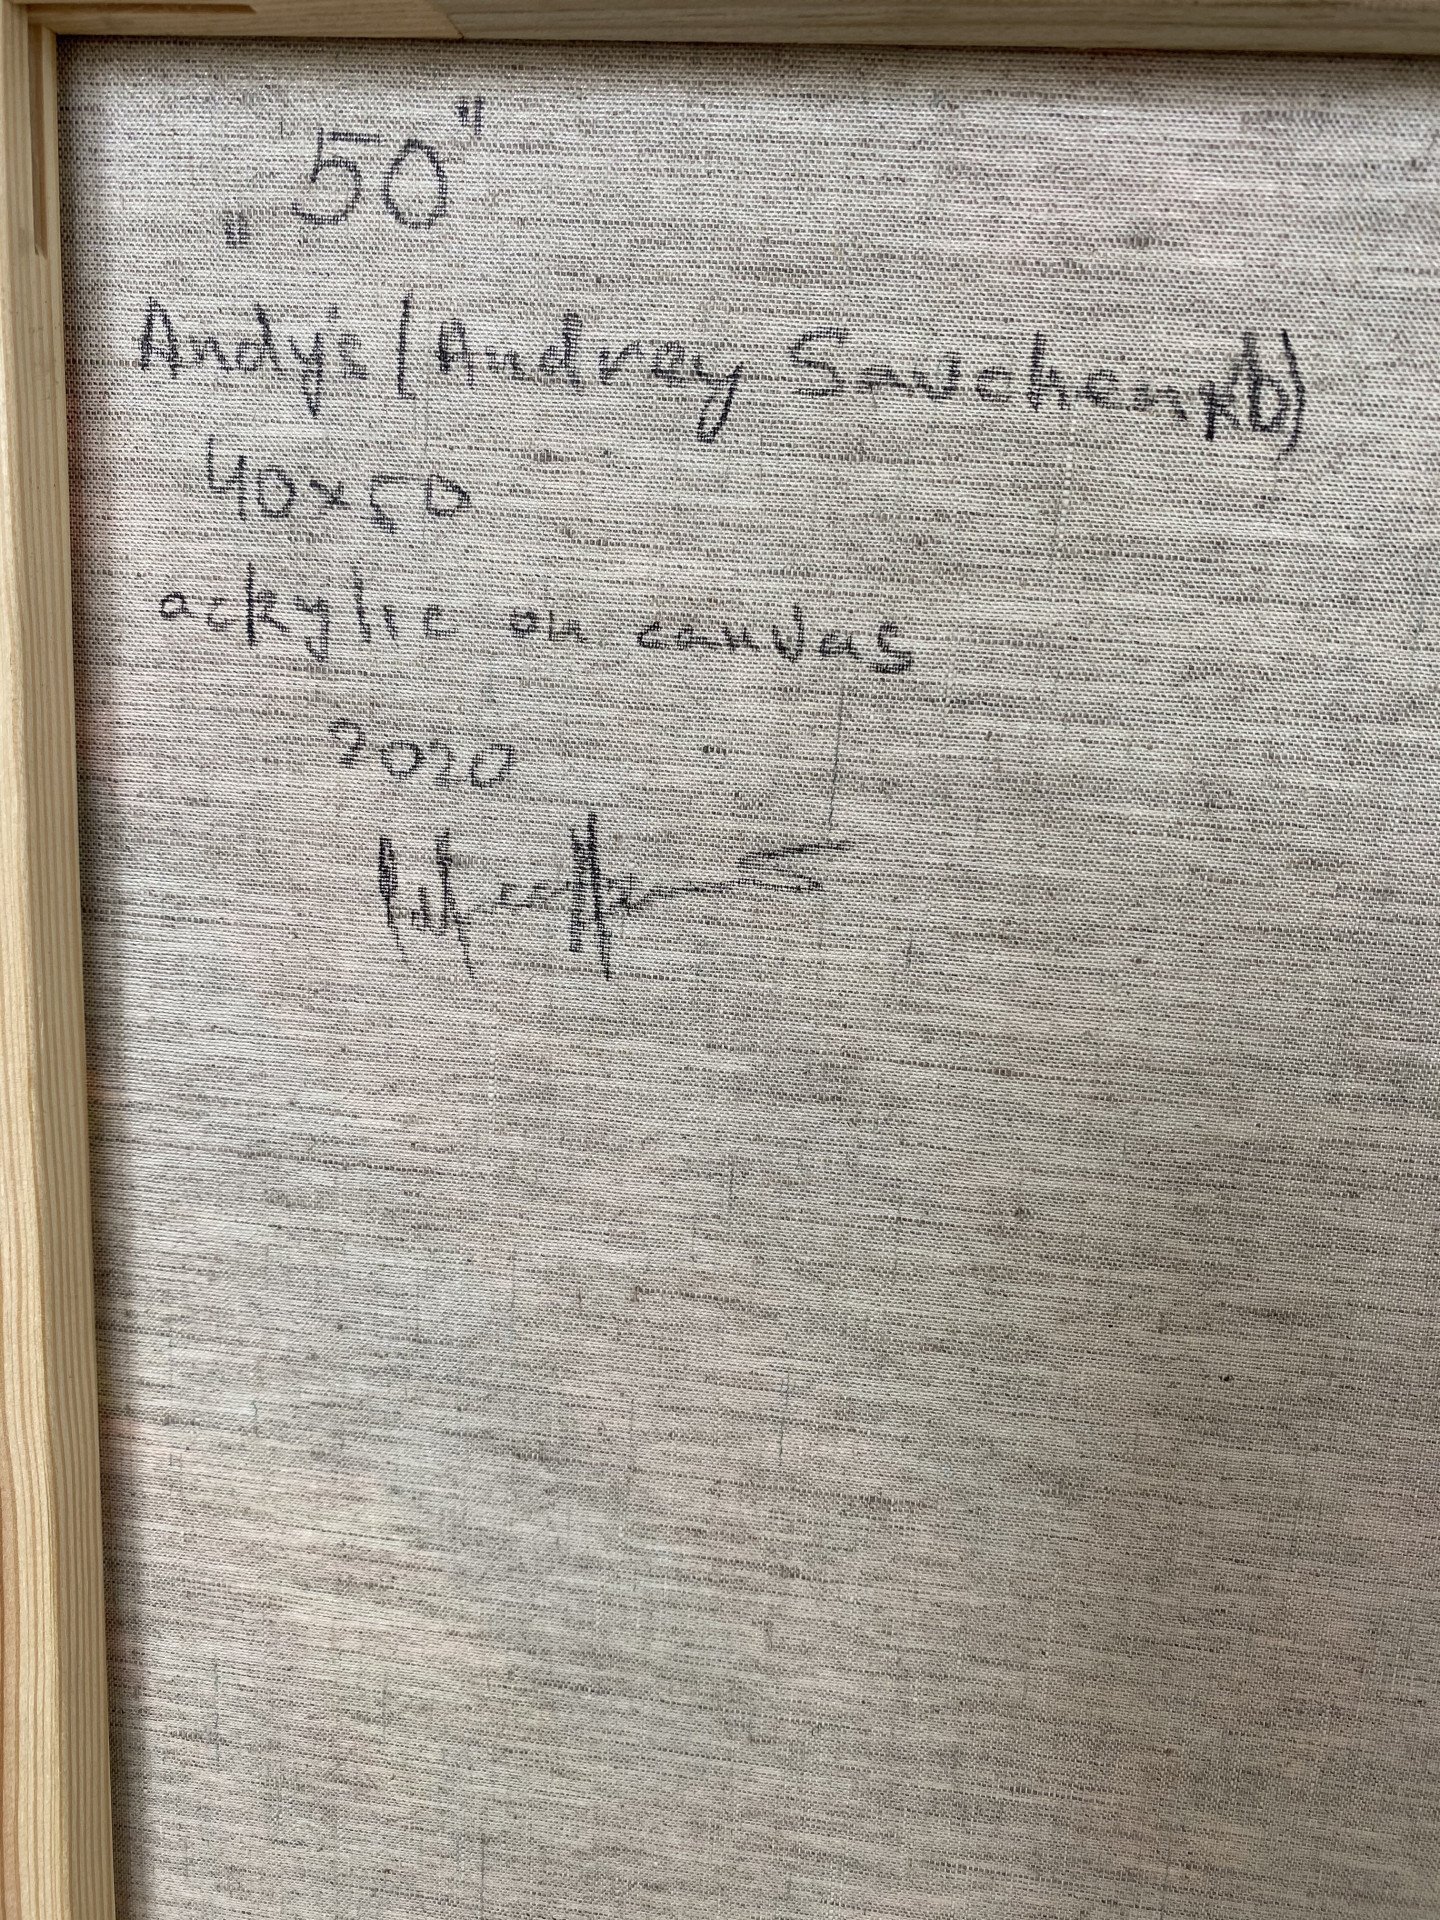 „50"
Andy's (Andrey Savchenko)
40x50
ackylic on canvas
2020